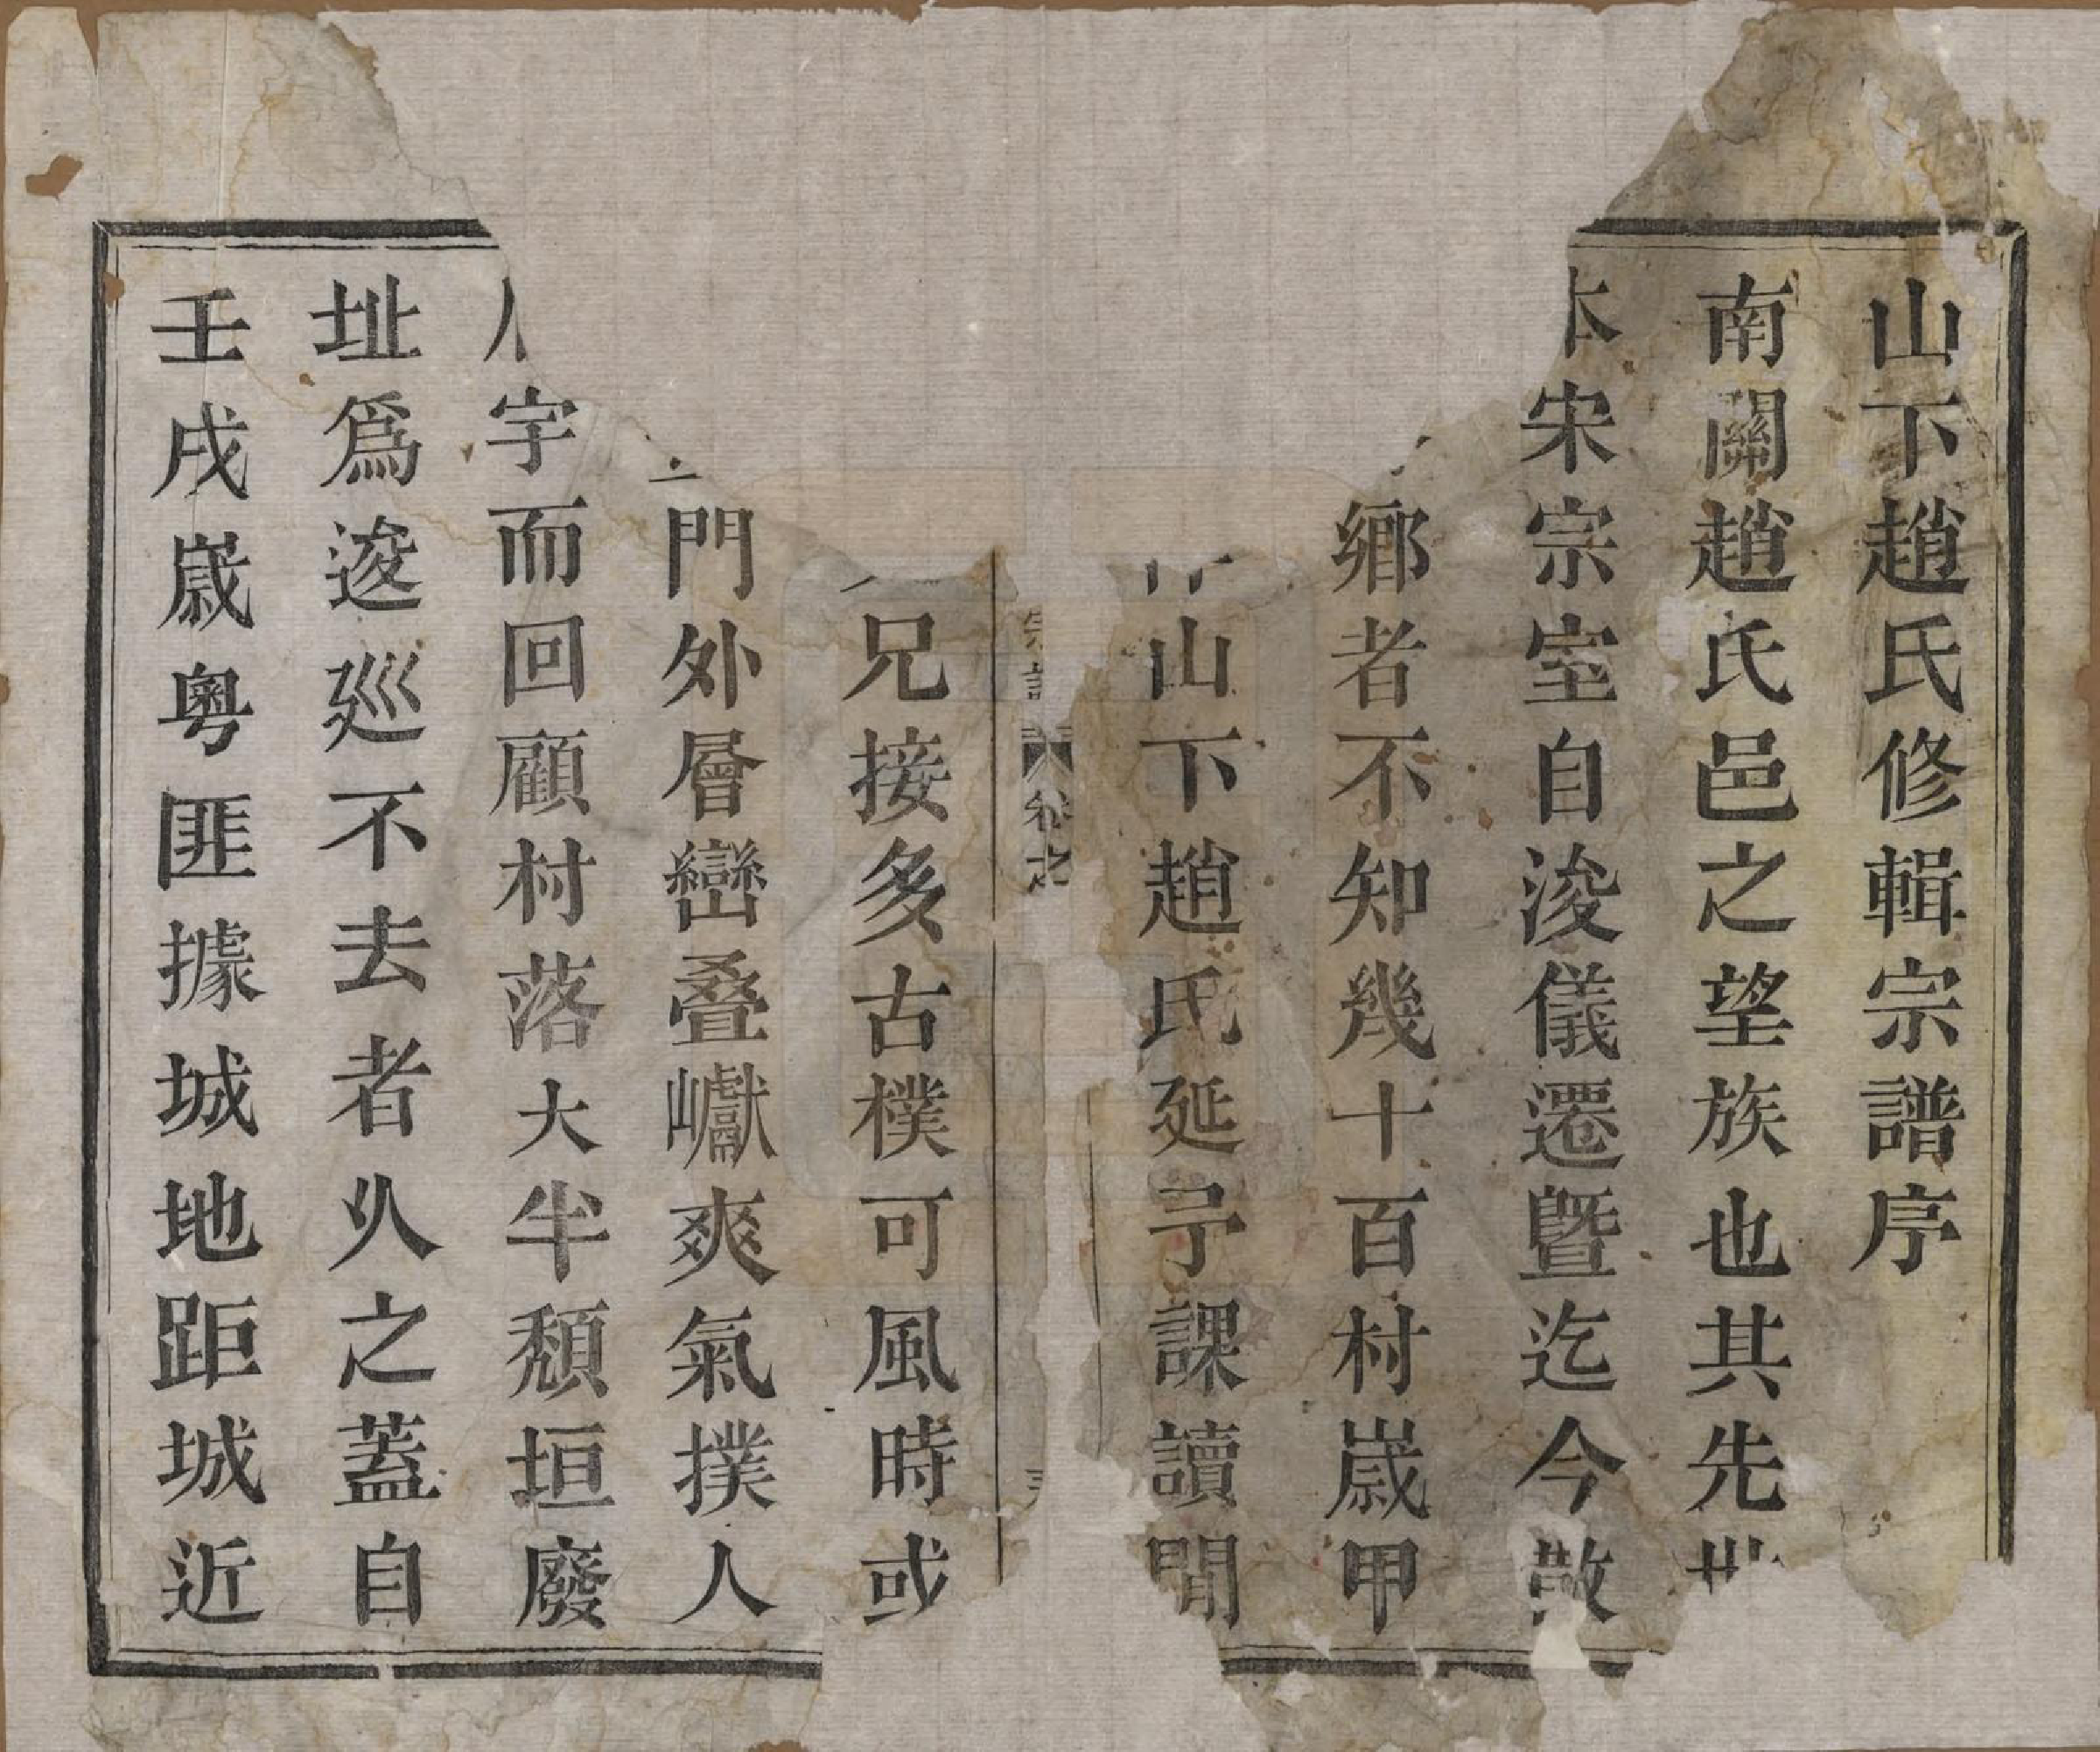 山下趙氏修輯宗譜序
南關趙氏邑之望族也其先世
本宋宗室自浚儀遷暨迄今散
鄉者不知幾十百村嵗甲
山下趙氏延予課讀閒
宗譜 卷之
兄接多古樸可風時或
門外層巒叠巘爽氣撲人
宇而回顧村落大半頽垣廢
址爲逡廵不去者乆之蓋自
壬戌嵗粵匪據城地距城近